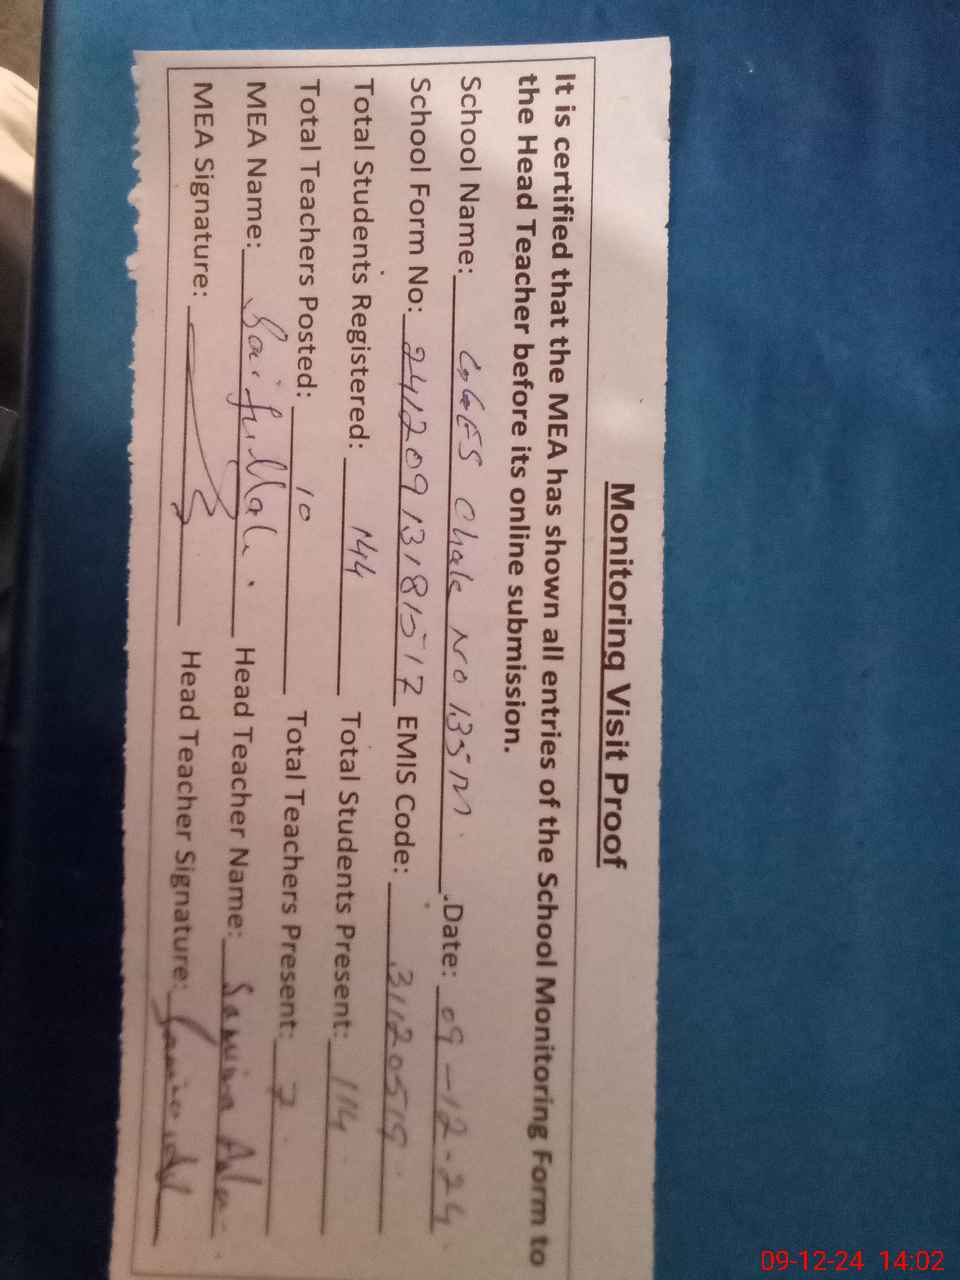 Monitoring Visit Proof
It is certified that the MEA has shown all entries of the School Monitoring Form to
the Head Teacher before its online submission.
School Name: GGES Chak No 135 M. .Date: 09-12-24
School Form No: 24120913181517 EMIS Code: 31120519
Total Students Registered: 144 Total Students Present: 114
Total Teachers Posted: 10 Total Teachers Present: 7
MEA Name: Saifullah. Head Teacher Name: Samina
MEA Signature: Head Teacher Signature:
09-12-24 14:02